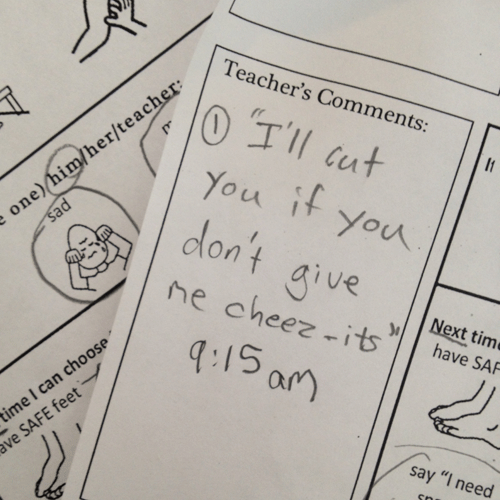 Teacher's Comments:
① "I'll cut
you if you
don't give
me cheez-its"
9:15 am
e one) him/her/teacher:
sad
time I can choose
ave SAFE feet
Next time
have SAF
say "I need